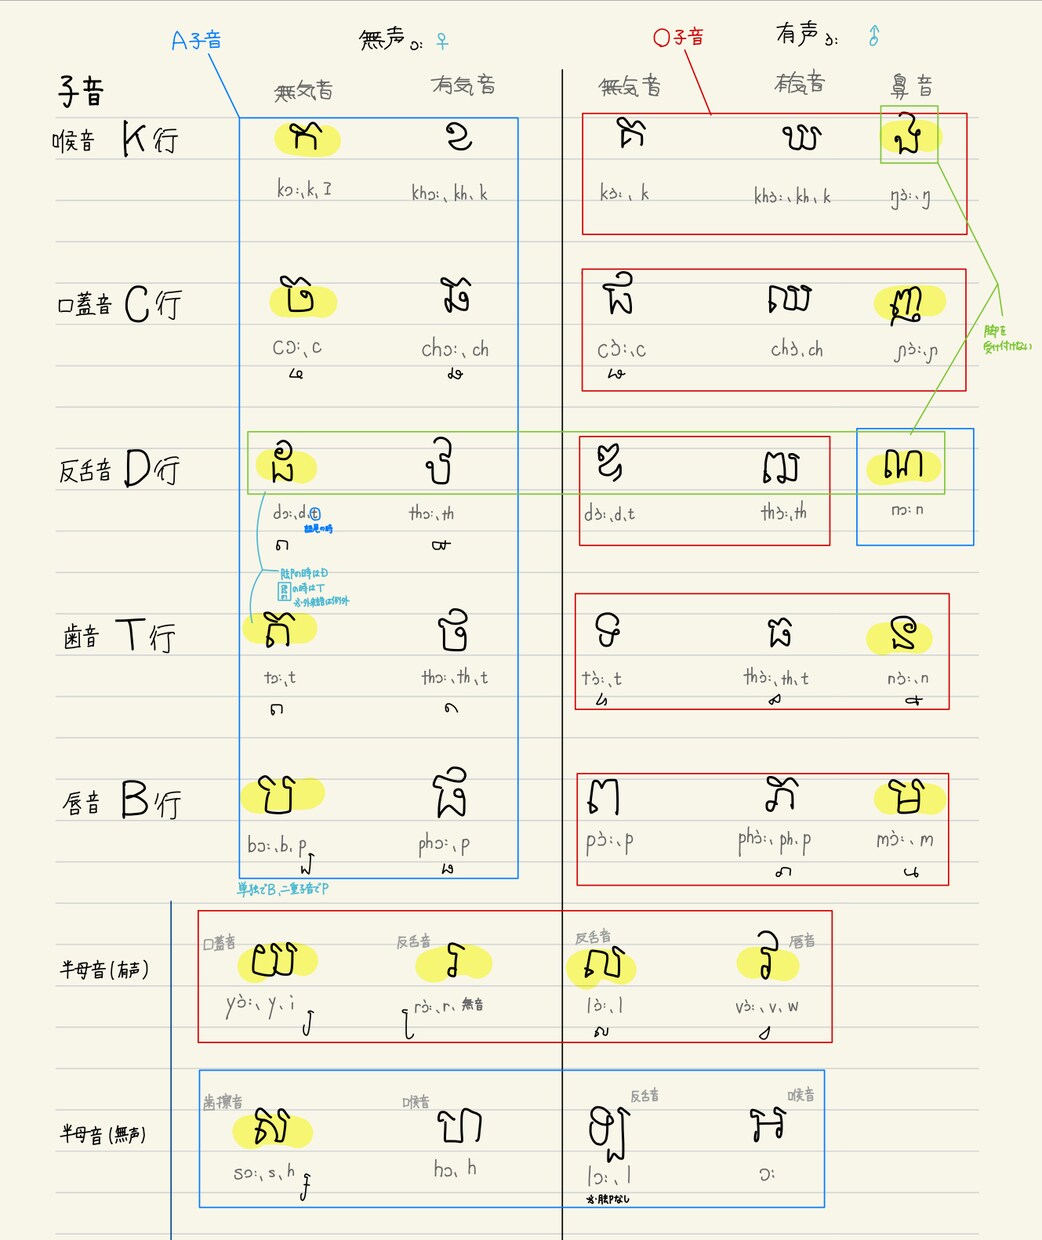 A子音 無声 ɔ: ♀ O子音 有声 ɔ̀: ♂
子音 無気音 有気音 無気音 有気音 鼻音
喉音 K行 ក ខ គ ឃ ង
kɔ:、k、ʔ khɔ:、kh、k kɔ̀:、k khɔ̀:、kh、k ŋɔ̀:、ŋ
口蓋音 C行 ច ឆ ជ ឈ ញ
cɔ:、c chɔ:、ch cɔ̀:、c chɔ̀、ch ɲɔ̀:、ɲ
脚を
受け付けない
反舌音 D行 ដ ឋ ឌ ឍ ណ
dɔ:、d、t thɔ:、th dɔ̀:、d、t thɔ̀:、th nɔ: n
の時はD
の時はT
※外来語は例外
歯音 T行 ត ថ ទ ធ ន
tɔ:、t thɔ:、th、t tɔ̀:、t thɔ̀:、th、t nɔ̀:、n
唇音 B行 ប ផ ព ភ ម
bɔ:、b、p phɔ:、p pɔ̀:、p phɔ̀:、ph、p mɔ̀:、m
単独でB、二重子音でP
口蓋音 反舌音 反舌音 唇音
半母音(有声) យ រ ល វ
yɔ̀:、y、i rɔ̀:、r、無音 lɔ̀:、l vɔ̀:、v、w
歯擦音 喉音 反舌音 喉音
半母音(無声) ស ហ ឡ អ
sɔ:、s、h hɔ、h lɔ:、l ɔ:
※脚なし